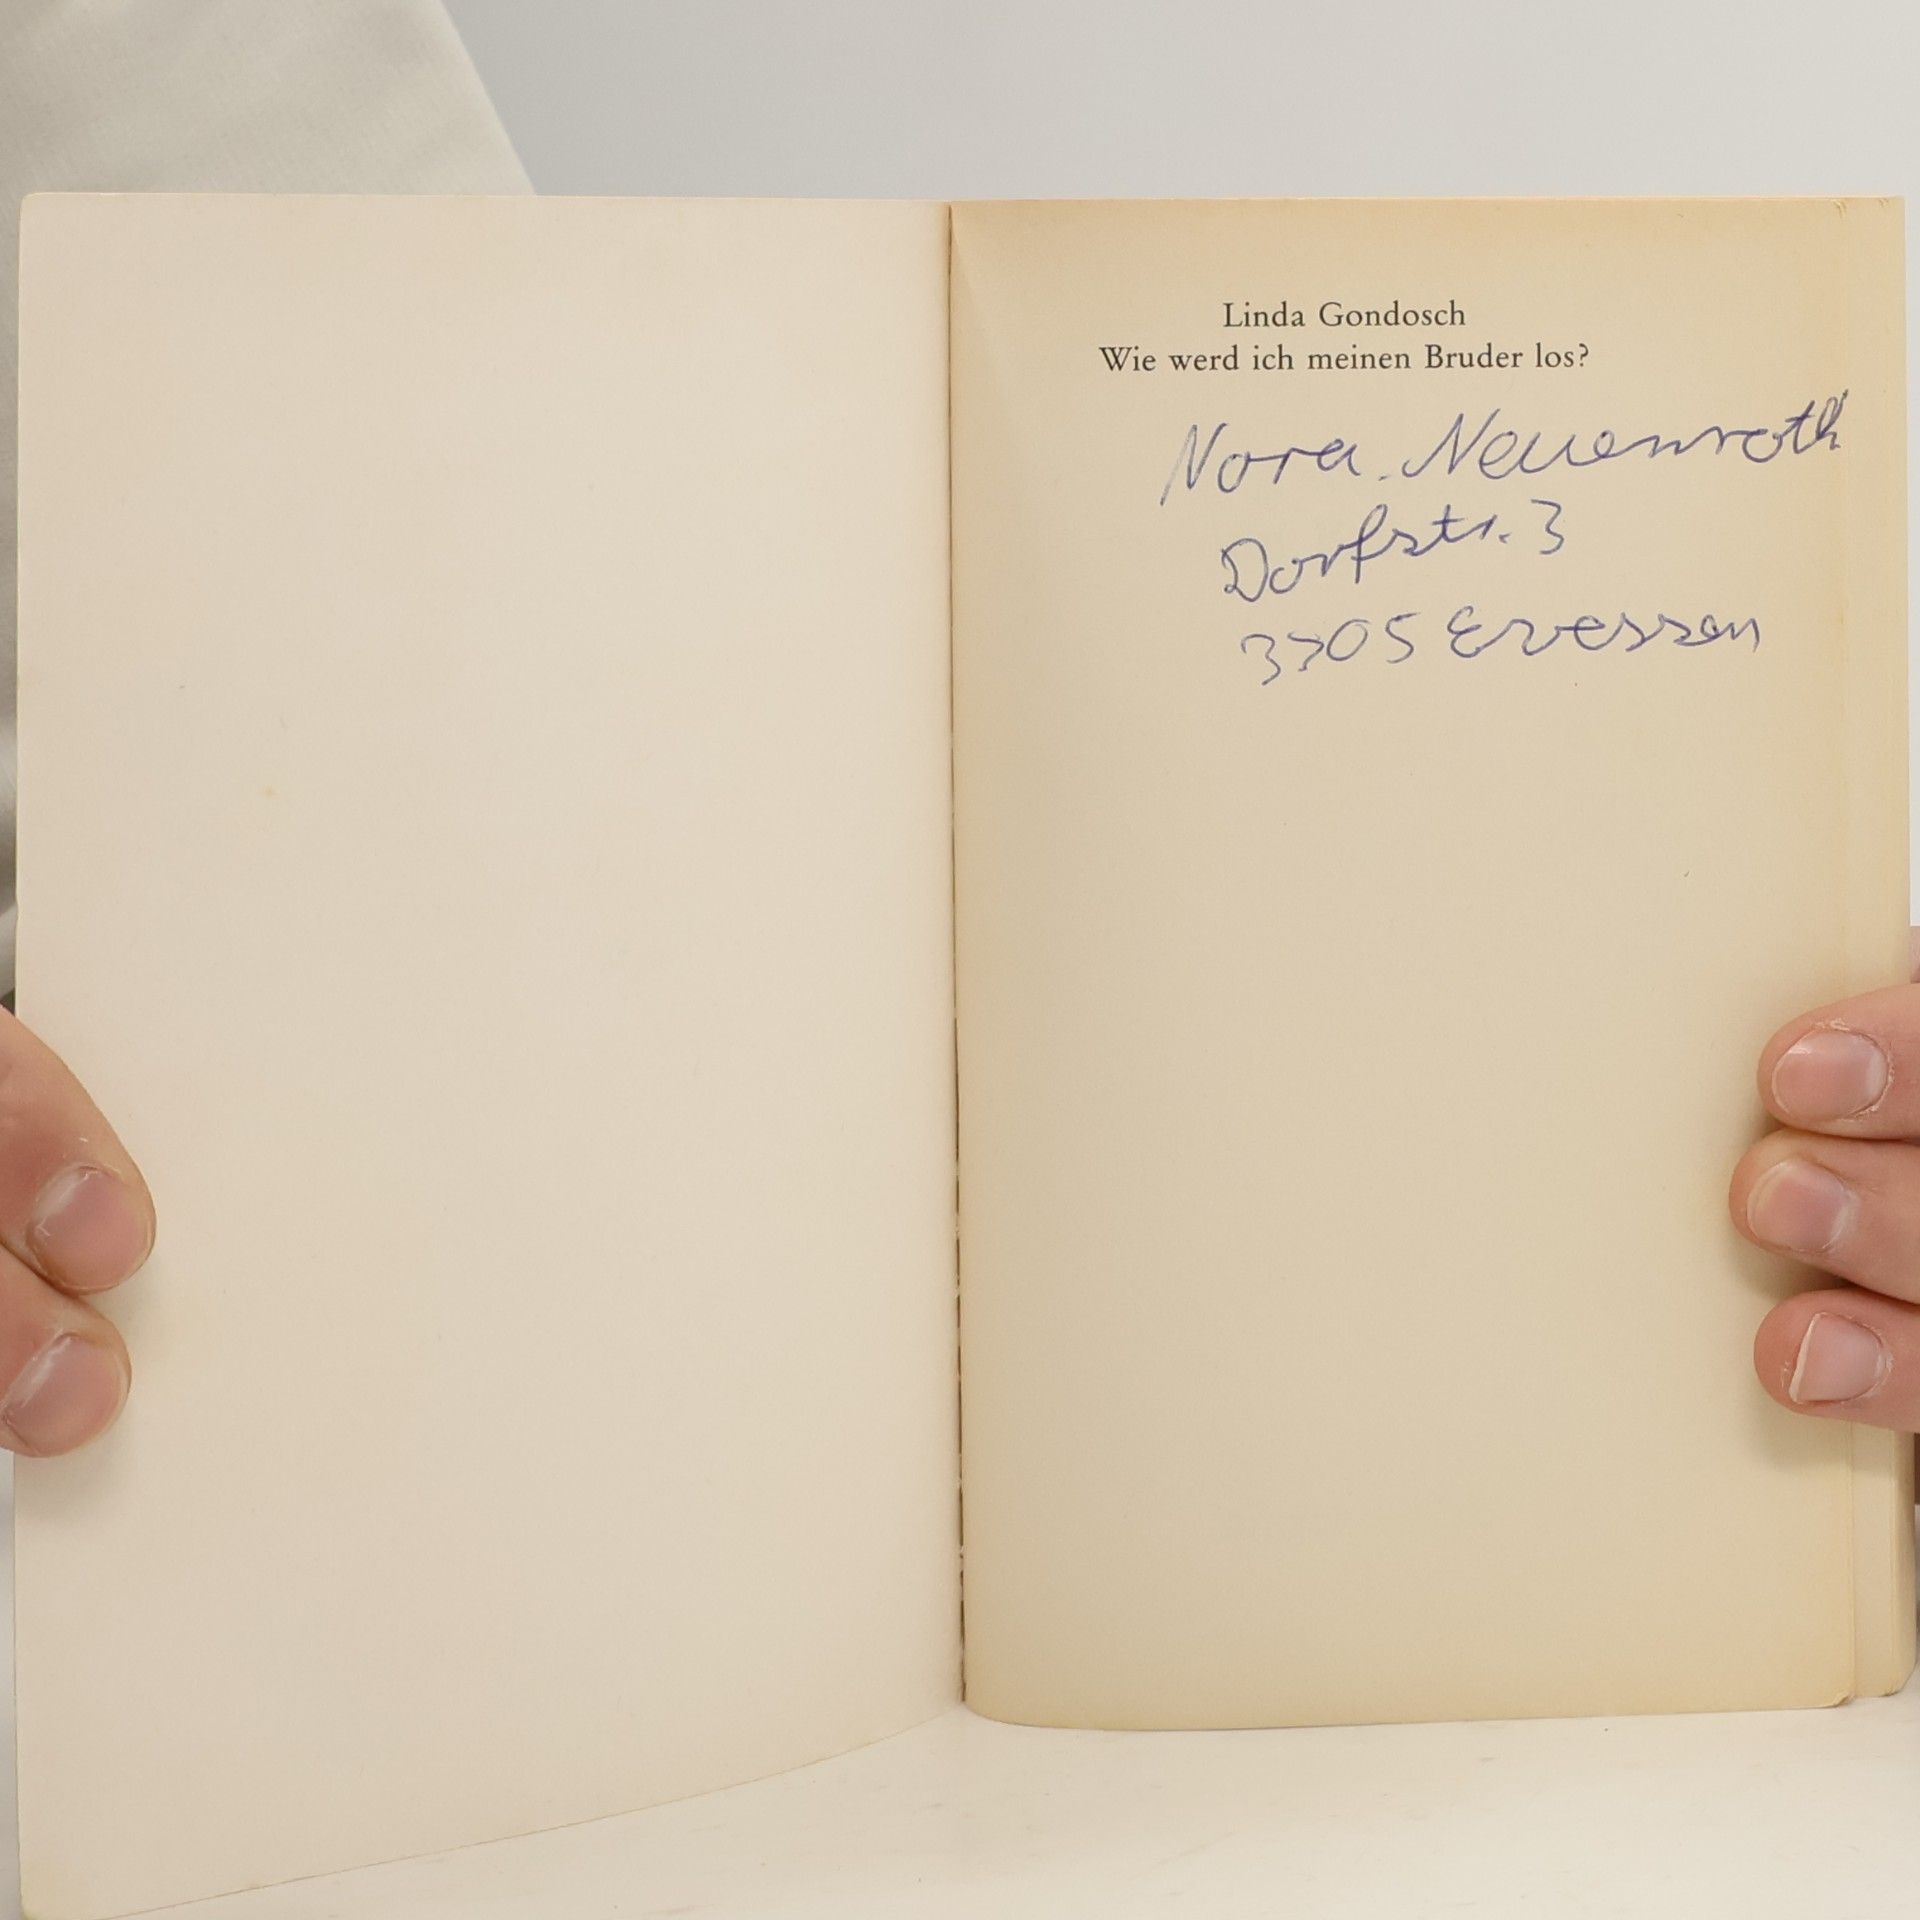 Linda Gondosch
Wie werd ich meinen Bruder los?
Nora Neuenroth
Dorfstr. 3
3305 Evessen